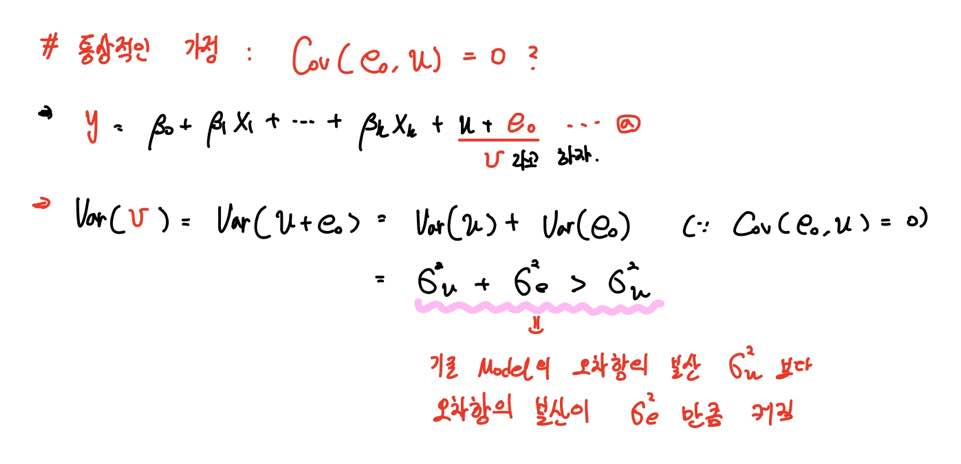 # 통상적인 가정 : Cov(e₀, u) = 0 ?
→ y = β₀ + β₁X₁ + ⋯ + βₖXₖ + u + e₀ ⋯ ⓐ
v 라고 하자.
⇒ Var(v) = Var(u+e₀) = Var(u) + Var(e₀) (∵ Cov(e₀, u) = 0)
= σ²ᵤ + σ²ₑ > σ²ᵤ
기존 Model의 오차항의 분산 σ²ᵤ 보다
오차항의 분산이 σ²ₑ 만큼 커짐